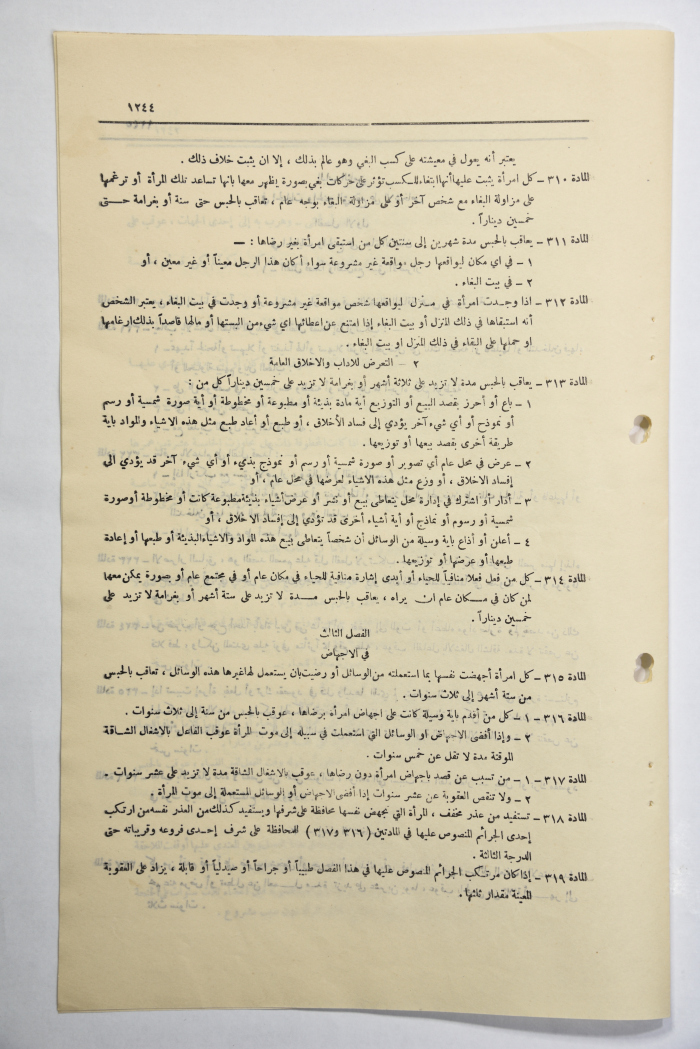 ١٢٤٤
يعتبر أنه يعول في معيشته على كسب البغي وهو عالم بذلك ، إلا ان يثبت خلاف ذلك .
المادة ٣١٠ ـ كل امرأة يثبت عليها أنها ابتغاء للكسب تؤثر على حركات بغي بصورة يظهر معها بانها تساعد تلك المرأة أو ترغمها
على مزاولة البغاء مع شخص آخر أو على مزاولة البغاء بوجه عام ، تعاقب بالحبس حتى سنة أو بغرامة حتى
خمسين ديناراً .
المادة ٣١١ ـ يعاقب بالحبس مدة شهرين إلى سنتين كل من استبقى امرأة بغير رضاها : ـ
١ ـ في اي مكان ليواقعها رجل مواقعة غير مشروعة سواء أكان هذا الرجل معيناً أو غير معين ، أو
٢ ـ في بيت البغاء .
المادة ٣١٢ ـ اذا وجدت امرأة في منزل ليواقعها شخص مواقعة غير مشروعة أو وجدت في بيت البغاء ، يعتبر الشخص
أنه استبقاها في ذلك المنزل أو بيت البغاء إذا امتنع عن اعطائها اي شيء من البستها أو مالها قاصداً بذلك ارغامها
او حملها على البقاء في ذلك المنزل او بيت البغاء .
٢ ـ التعرض للآداب والاخلاق العامة
المادة ٣١٣ ـ يعاقب بالحبس مدة لا تزيد على ثلاثة أشهر أو بغرامة لا تزيد على خمسين ديناراً كل من :
١ ـ باع أو أحرز بقصد البيع أو التوزيع أية مادة بذيئة أو مطبوعة أو مخطوطة أو أية صورة شمسية أو رسم
أو نموذج أو أي شيء آخر يؤدي إلى فساد الأخلاق ، أو طبع أو أعاد طبع مثل هذه الاشياء والمواد باية
طريقة أخرى بقصد بيعها أو توزيعها .
٢ ـ عرض في محل عام أي تصوير أو صورة شمسية أو رسم أو نموذج بذيء أو أي شيء آخر قد يؤدي الى
إفساد الاخلاق ، أو وزع مثل هذه الاشياء لعرضها في محل عام ، أو
٣ ـ أدار أو اشترك في إدارة محل يتعاطى بيع أو نشر أو عرض أشياء بذيئة مطبوعة كانت أو مخطوطة أو صورة
شمسية أو رسوم أو نماذج أو أية أشياء أخرى قد تؤدي إلى إفساد الاخلاق ، أو
٤ ـ أعلن أو أذاع باية وسيلة من الوسائل أن شخصاً يتعاطى بيع هذه المواد والاشياء البذيئة أو طبعها أو إعادة
طبعها أو عرضها أو توزيعها .
المادة ٣١٤ ـ كل من فعل فعلاً منافياً للحياء أو أبدى إشارة منافية للحياء في مكان عام أو في مجتمع عام أو بصورة يمكن معها
لمن كان في مكان عام ان يراه ، يعاقب بالحبس مدة لا تزيد على ستة أشهر أو بغرامة لا تزيد على
خمسين ديناراً .
الفصل الثالث
في الاجهاض
المادة ٣١٥ ـ كل امرأة أجهضت نفسها بما استعملته من الوسائل أو رضيت بان يستعمل لها غيرها هذه الوسائل ، تعاقب بالحبس
من ستة أشهر إلى ثلاث سنوات .
المادة ٣١٦ ـ ١ ـ كل من أقدم باية وسيلة كانت على اجهاض امرأة برضاها ، عوقب بالحبس من سنة إلى ثلاث سنوات .
٢ ـ وإذا أفضى الاجهاض او الوسائل التي استعملت في سبيله إلى موت المرأة عوقب الفاعل بالاشغال الشاقة
المؤقتة مدة لا تقل عن خمس سنوات .
المادة ٣١٧ ـ ١ ـ من تسبب عن قصد باجهاض امرأة دون رضاها ، عوقب بالاشغال الشاقة مدة لا تزيد على عشر سنوات .
٢ ـ ولا تنقص العقوبة عن عشر سنوات إذا أفضى الاجهاض أو الوسائل المستعملة إلى موت المرأة .
المادة ٣١٨ ـ تستفيد من عذر مخفف ، المرأة التي تجهض نفسها محافظة على شرفها ويستفيد كذلك من العذر نفسه من ارتكب
إحدى الجرائم المنصوص عليها في المادتين ( ٣١٦ و ٣١٧ ) للمحافظة على شرف إحدى فروعه وقريباته حتى
الدرجة الثالثة .
المادة ٣١٩ ـ إذا كان مرتكب الجرائم المنصوص عليها في هذا الفصل طبيباً أو جراحاً أو صيدلياً أو قابلة ، يزاد على العقوبة
المعينة مقدار ثلثها .